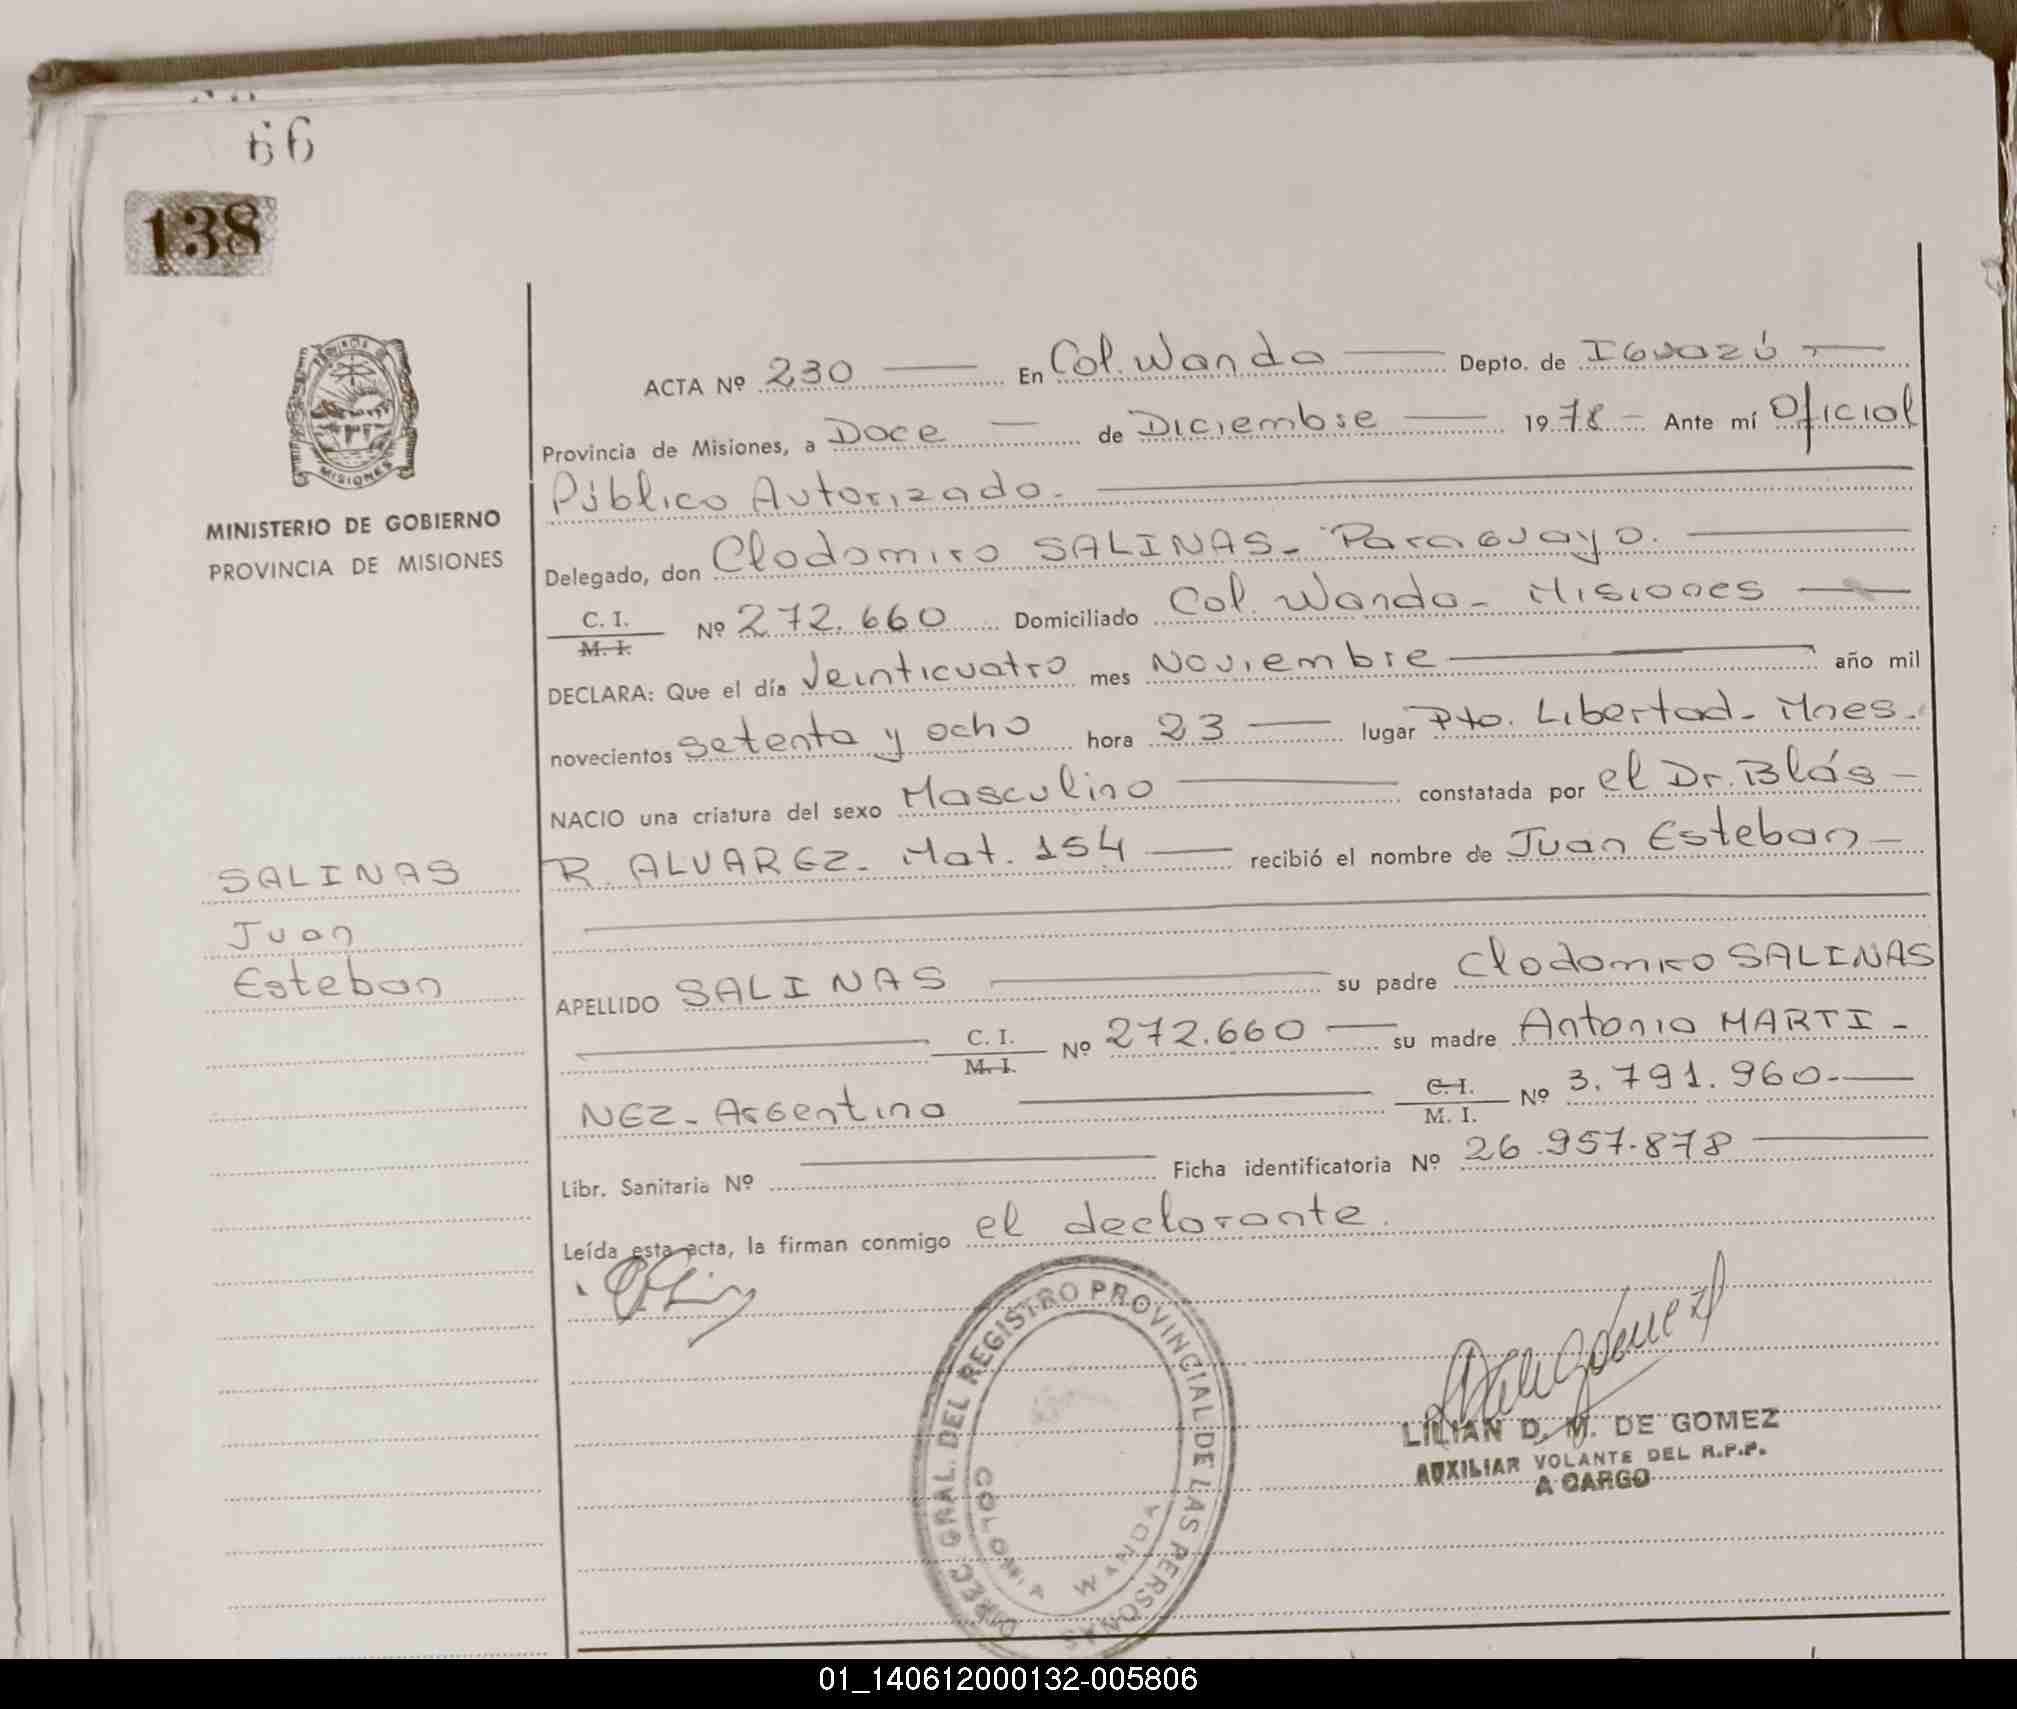 66
138
PROVINCIA DE
MISIONES
MINISTERIO DE GOBIERNO
PROVINCIA DE MISIONES
SALINAS
Juan
Esteban
ACTA Nº 230 En Col. Wanda Depto. de Iguazú
Provincia de Misiones, a Doce de Diciembre 1978 - Ante mí Oficial
Público Autorizado.
Delegado, don Clodomiro SALINAS - Paraguayo.
C. I.
M. I. Nº 272.660 Domiciliado Col. Wanda - Misiones
DECLARA: Que el día Veinticuatro mes Noviembre año mil
novecientos setenta y ocho hora 23 lugar Pto. Libertad - Mnes.
NACIO una criatura del sexo Masculino constatada por el Dr. Blás -
R. ALVAREZ - Mat. 154 recibió el nombre de Juan Esteban -
APELLIDO SALINAS su padre Clodomiro SALINAS
C. I.
M. I. Nº 272.660 su madre Antonia MARTI -
NEZ - Argentina C. I.
M. I. Nº 3.791.960 -
Libr. Sanitaria Nº Ficha identificatoria Nº 26.957.878
Leída esta acta, la firman conmigo el declarante.
DIREC. GRAL. DEL REGISTRO PROVINCIAL DE LAS PERSONAS
COLONIA WANDA
LILIAN D. M. DE GOMEZ
AUXILIAR VOLANTE DEL R.P.P.
A CARGO
01_140612000132-005806